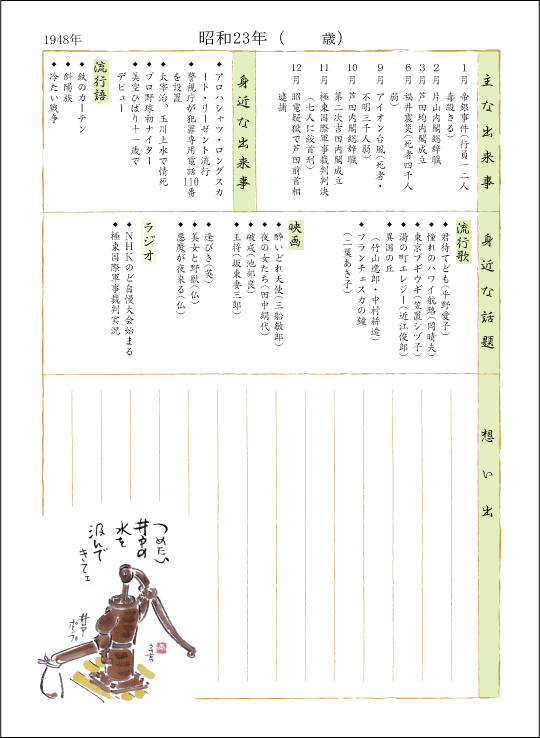 1948年
昭和23年（　　歳）
主な出来事
1月 帝銀事件（行員一二人
毒殺さる）
2月 片山内閣総辞職
3月 芦田均内閣成立
6月 福井震災（死者四千人
弱）
9月 アイオン台風（死者・
不明三千人弱）
10月 芦田内閣総辞職
第二次吉田内閣成立
11月 極東国際軍事裁判判決
（七人に絞首刑）
12月 昭電疑獄で芦田前首相
逮捕
身近な出来事
◆アロハシャツ・ロングスカ
ート・リーゼント流行
◆警視庁が犯罪専用電話110番
を設置
◆太宰治、玉川上水で情死
◆プロ野球初ナイター
◆美空ひばり十一歳で
デビュー
流行語
◆鉄のカーテン
◆斜陽族
◆冷たい戦争
身近な話題
流行歌
◆君待てども（平野愛子）
◆憧れのハワイ航路（岡晴夫）
◆東京ブギウギ（笠置シヅ子）
◆湯の町エレジー（近江俊郎）
◆異国の丘
（竹山逸郎・中村耕造）
◆フランチェスカの鐘
（二葉あき子）
映画
◆酔いどれ天使（三船敏郎）
◆夜の女たち（田中絹代）
◆破戒（池部良）
◆王将（坂東妻三郎）
◆逢びき（英）
◆美女と野獣（仏）
◆悪魔が夜来る（仏）
ラジオ
◆NHKのど自慢大会始まる
◆極東国際軍事裁判実況
想い出
つめたい
井戸の
水を
汲んで
きてェ
井戸
ポンプ